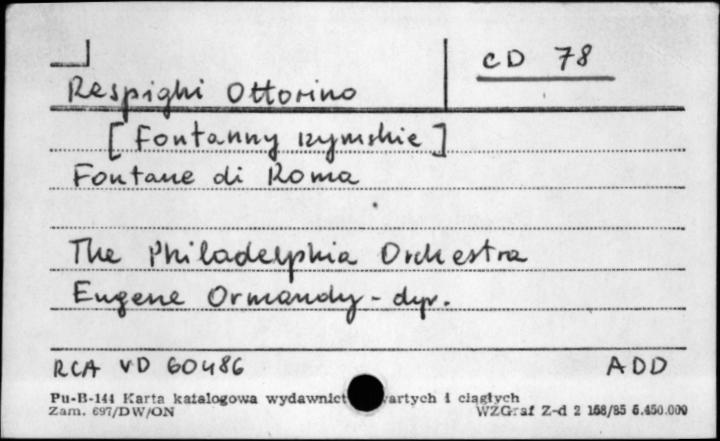 CD 78
Respighi Ottorino
[Fontanny rzymskie]
Fontane di Roma
The Philadelphia Orchestra
Eugene Ormandy - dyr.
RCA VD 60486 ADD
Pu-B-144 Karta katalogowa wydawnict artych i ciągłych
Zam. 697/DW/ON WZGraf Z-d 2 168/85 5.450.000